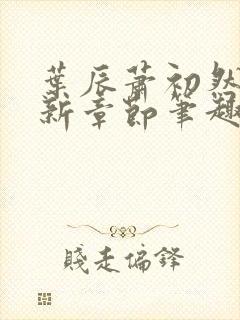 葉辰蕭初然
新章節筆趣
賤走偏鋒